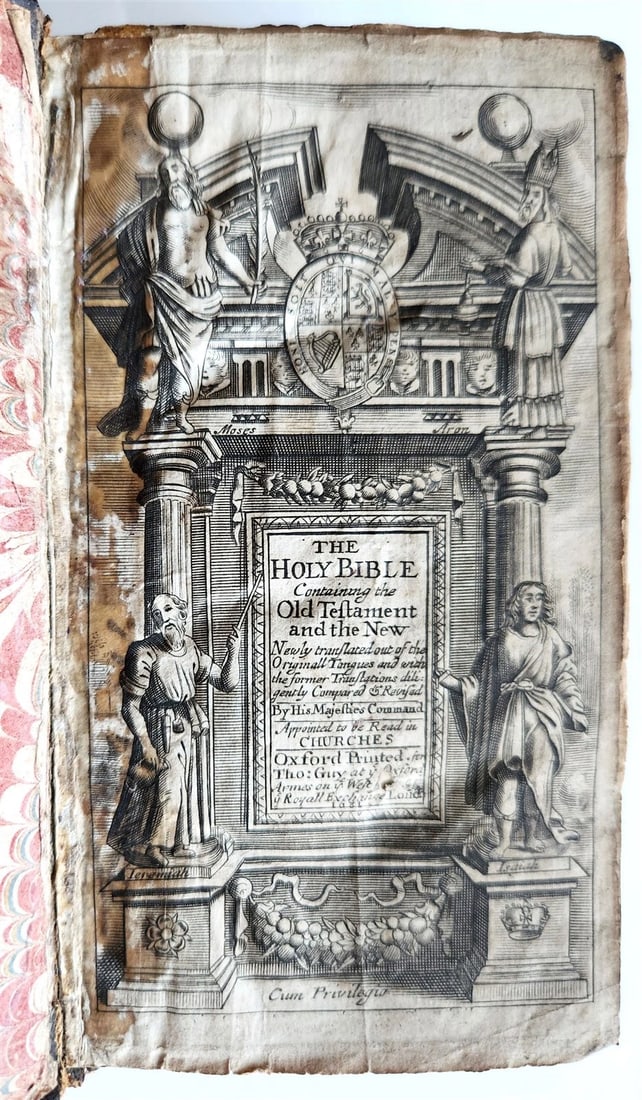 HONI SOIT MAL Y PENSE
Moses Aron
THE
HOLY BIBLE
Containing the
Old Testament
and the New
Newly translated out of the
Originall Tongues and with
the former Translations dili:
gently Compared & Revised
By His Majesties Command
Appointed to be Read in
CHURCHES
Oxford Printed for
Tho: Guy at yͤ Oxford
Armes on yͤ West
yͤ Royall Exchange Lond
Ieremiah Isaiah
Cum Privilegio